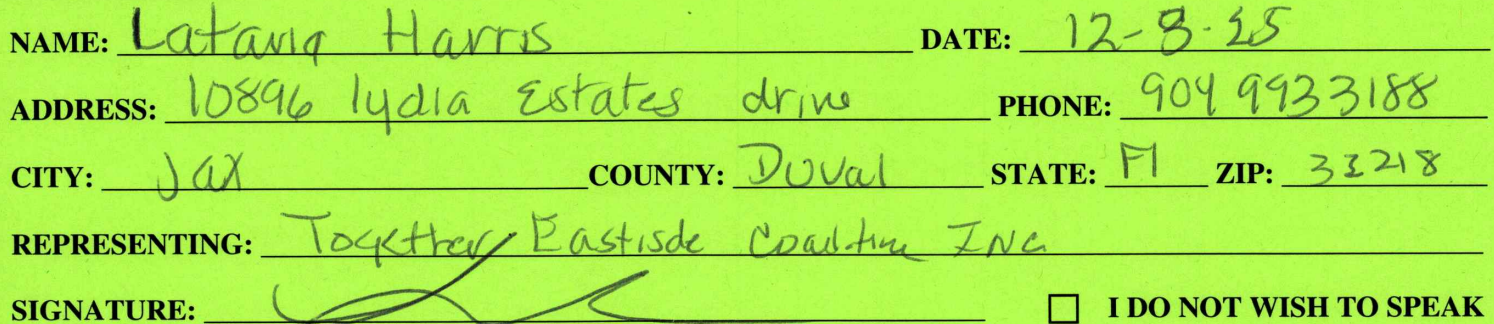 NAME: Latavia Harris DATE: 12-8-25
ADDRESS: 10896 lydia Estates drive PHONE: 904 9933188
CITY: Jax COUNTY: Duval STATE: Fl ZIP: 32218
REPRESENTING: Together Eastisde Coalition INC
SIGNATURE: ☐ I DO NOT WISH TO SPEAK